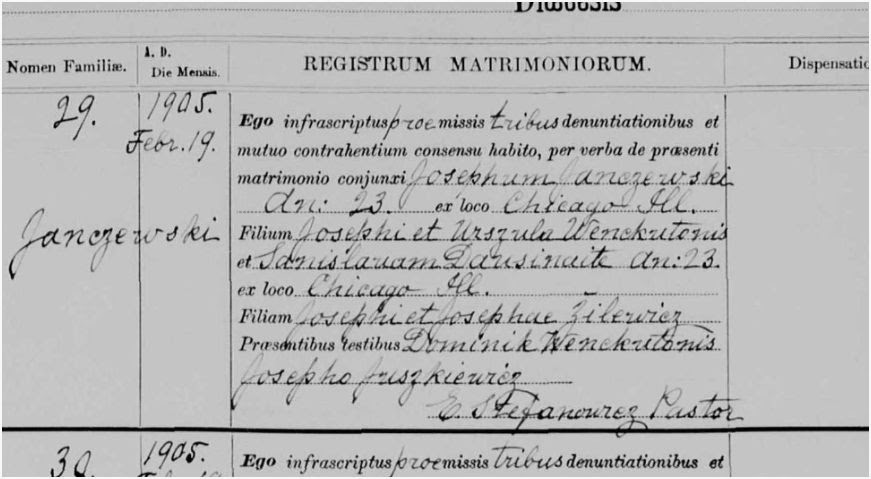 Diœcesis
Nomen Familiæ.
A. D.
Die Mensis.
REGISTRUM MATRIMONIORUM.
29.
1905.
Febr. 19.
Janczewski
Ego infrascriptus proemissis tribus denuntiationibus et
mutuo contrahentium consensu habito, per verba de præsenti
matrimonio conjunxi Josephum Janczewski
an: 23. ex loco Chicago Ill.
Filium Josephi et Urszula Wenckutonis
et Sanislavam Dausinaite an: 23.
ex loco Chicago Ill.
Filiam Josephi et Josephae Zilewicz
Præsentibus testibus Dominik Wenckutonis
Josepho Juszkiewicz
E. Stefanowicz Pastor
30
1905.
Ego infrascriptus proemissis tribus denuntiationibus et